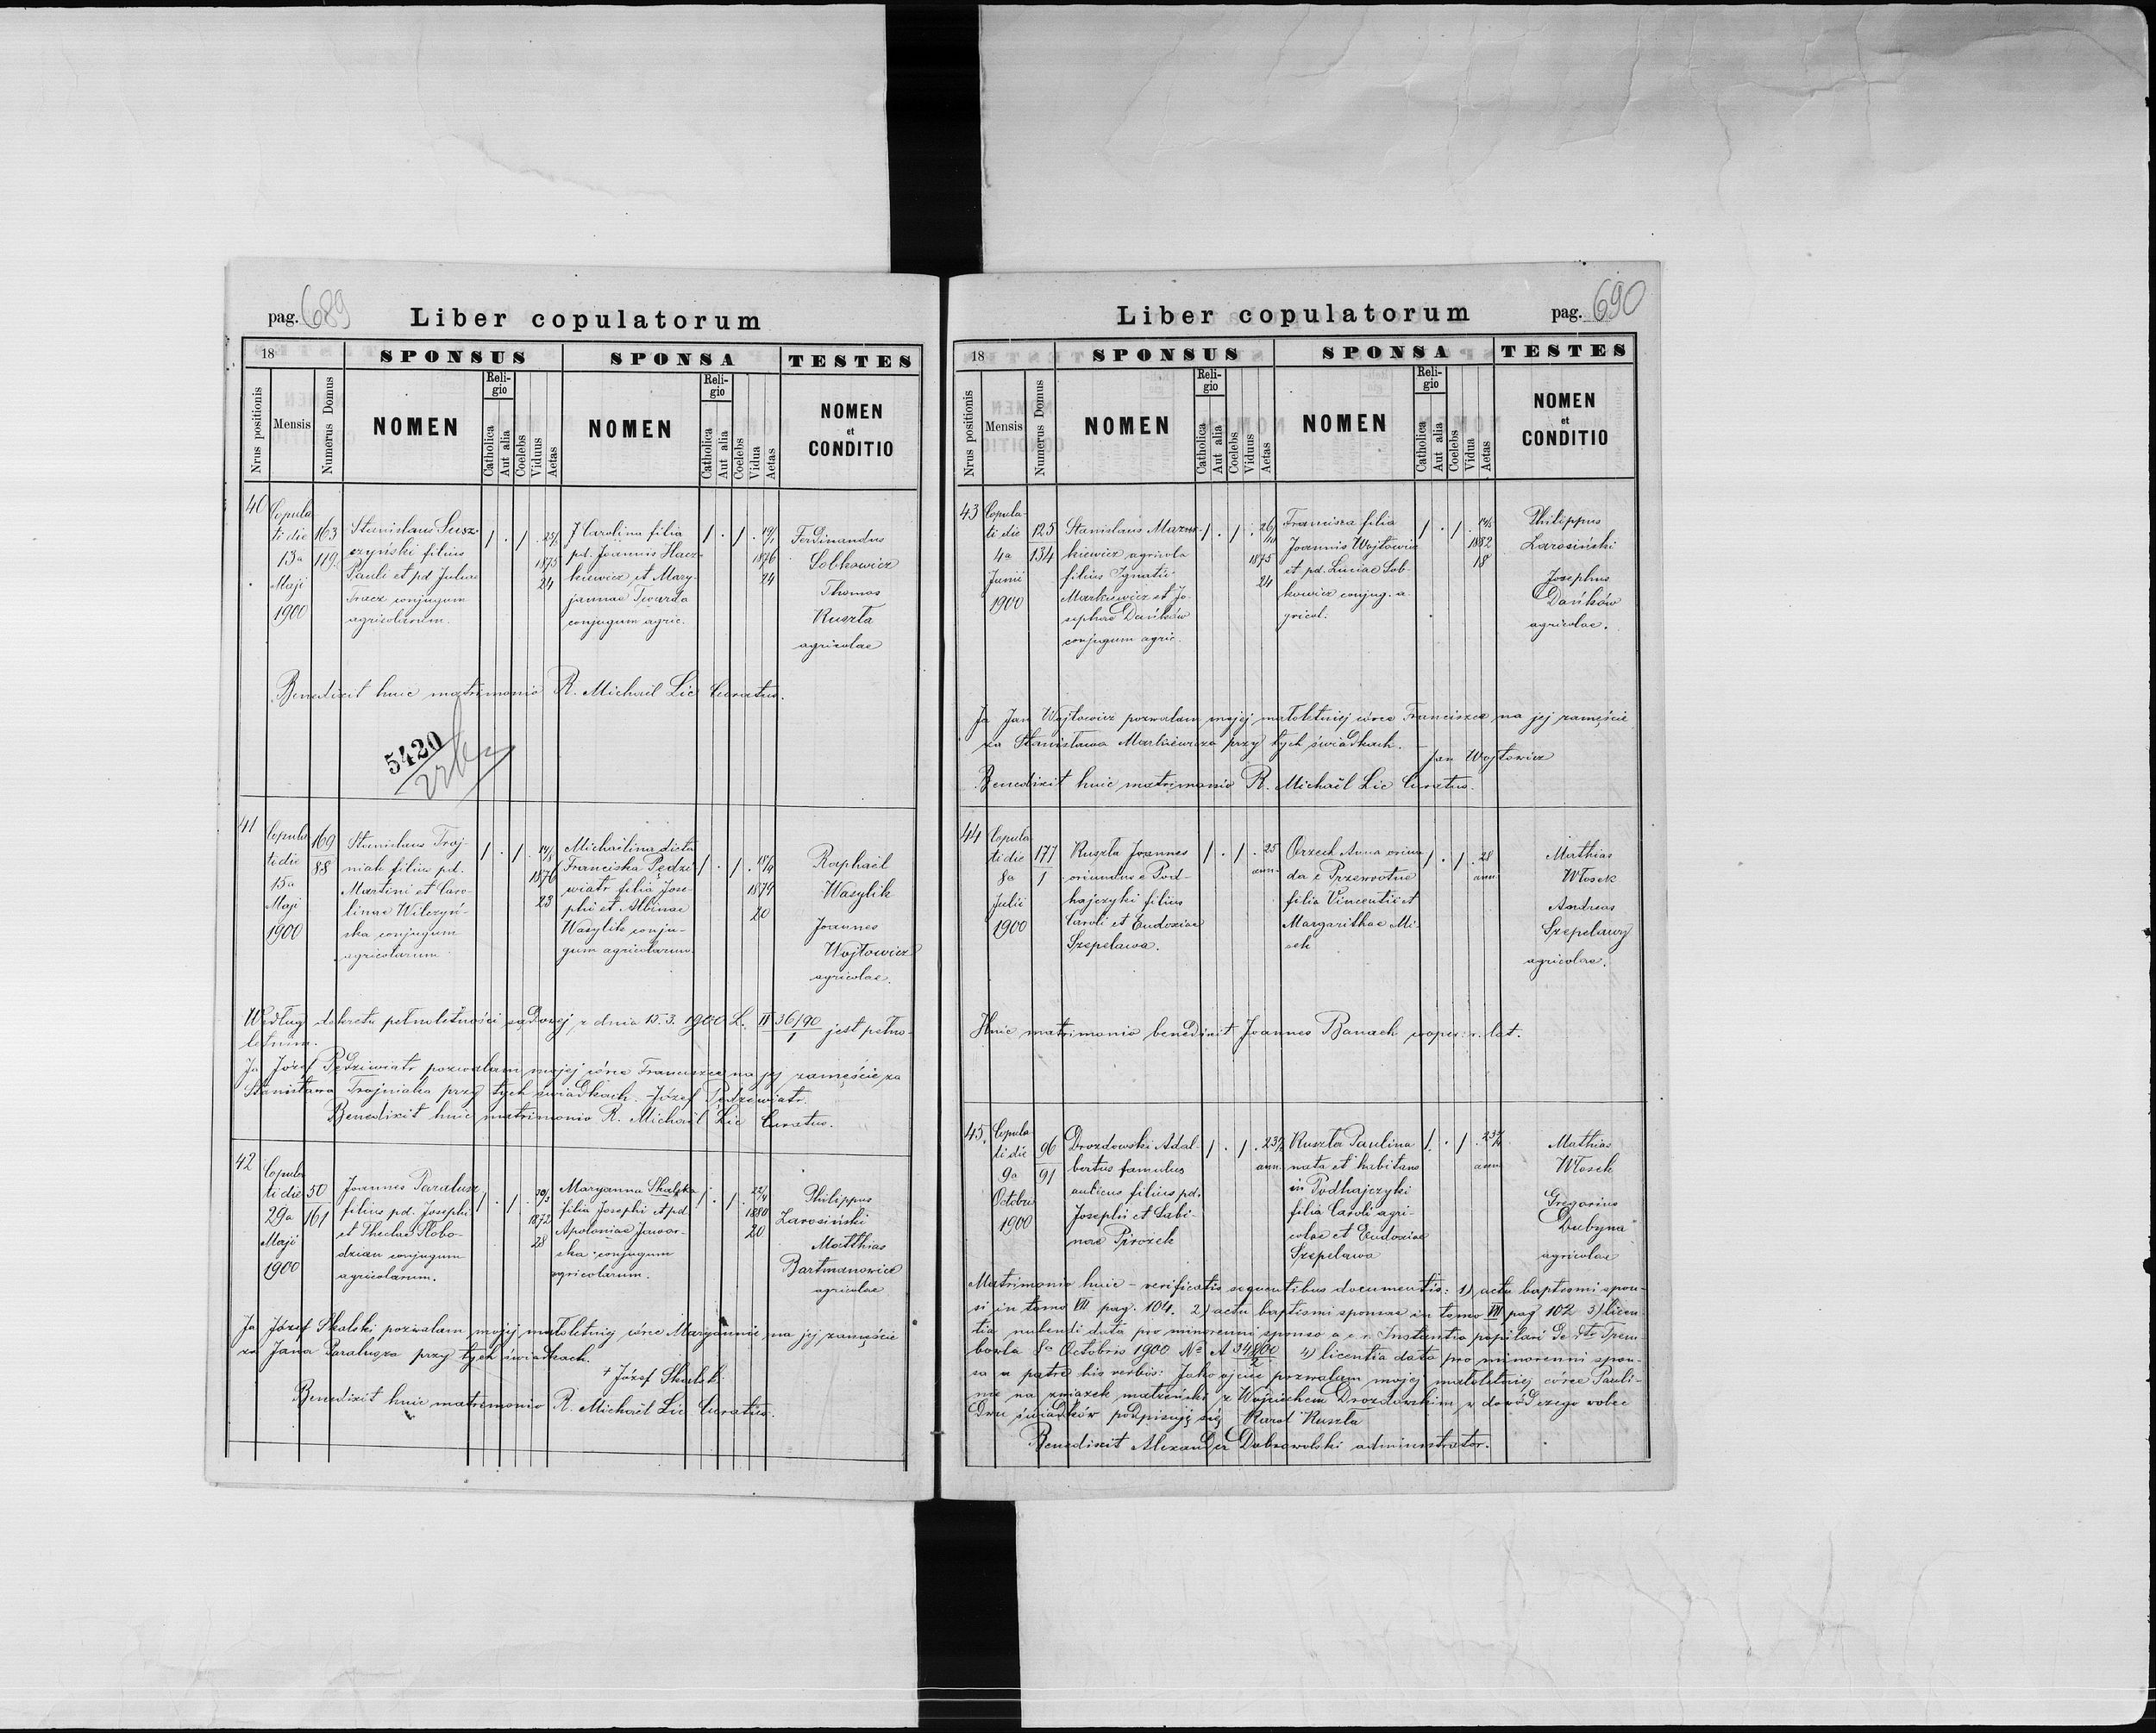 pag. 689
Liber copulatorum
18
SPONSUS
SPONSA
TESTES
Nrus positionis
Mensis
Numerus Domus
NOMEN
Religio
Catholica
Aut alia
Coelebs
Viduus
Aetas
NOMEN
Religio
Catholica
Aut alia
Coelebs
Vidua
Aetas
NOMEN
et
CONDITIO
40
Copula
ti die
13a
Maji
1900
163
119
Stanislaus Susz
czyński filius
Pauli et pd Juliae
Tracz conjugum
agricolarum.
1875
24
Karolina filia
pd. Joannis Hacz-
kiewicz et Mary-
jannae Twarda
conjugum agric.
1876
24
Ferdinandus
Sobkowicz
Thomas
Kuszta
agricolae
Benedixit huic matrimonio R. Michaël Lic Curatus.
5420
41
Copula
ti die
15a
Maji
1900
169
88
Stanislaus Troj-
niak filius pd.
Martini et Caro-
linae Wilczyń-
ska conjugum
agricolarum
14/8
1876
23
Michaëlina dicta
Franciska Pędzi
wiatr filia Jose-
phi et Albinae
Wasylik conju-
gum agricolarum.
18/9
1879
20
Raphaël
Wasylik
Joannes
Wojtowicz
agricolae.
Według dekretu pełnoletności sądowej z dnia 15. 3. 1900 L. II 36/90 jest pełno-
1
letnim.
Ja Józef Pędziwiatr pozwalam mojej córce Franciszce na jej zamęście za
Stanisława Trojniaka przy tych świadkach. Józef Pędziwiatr.
Benedixit huic matrimonio R. Michaël Lic Curatus.
42
Copula
ti die
29a
Maji
1900
50
161
Joannes Paralusz
filius pd. Josephi
et Theclae Słobo-
dzian conjugum
agricolarum.
1872
28
Maryanna Skalska
filia Josephi et pd
Apoloniae Jawor-
ska conjugum
agricolarum.
22/4
1880
20
Philippus
Zarosiński
Matthias
Bartmanowicz
agricolae
Ja Józef Skalski pozwalam mojej małoletniej córce Maryannie na jej zamęście
za Jana Paralusza przy tych świadkach.
+ Józef Skalski
Benedixit huic matrimonio R. Michaël Lic Curatus.
Liber copulatorum
pag. 690
18
SPONSUS
SPONSA
TESTES
Nrus positionis
Mensis
Numerus Domus
NOMEN
Religio
Catholica
Aut alia
Coelebs
Viduus
Aetas
NOMEN
Religio
Catholica
Aut alia
Coelebs
Vidua
Aetas
NOMEN
et
CONDITIO
43
Copula-
ti die
4a
Junii
1900
125
134
Stanislaus
kiewicz agricola
filius Ignatii
Markiewicz et Jo-
sephae Dańków
conjugum agric.
1875
24
Francisca filia
Joannis Wojtowicz
et pd. Luciae Sob-
kowicz conjug. a
gricol.
1882
18
Philippus
Zarosiński
Josephus
Dańków
agricolae.
Ja Jan Wojtowicz pozwalam mojej małoletniej córce Franciszce na jej zamęście
za Stanisława Markiewicza przy tych świadkach.
Jan Wojtowicz
Benedixit huic matrimonio R. Michaël Lic Curatus.
44
Copula
ti die
8a
Julii
1900
177
1
Kuszta Joannes
oriundus e Pod-
hajczyki filius
Caroli et Eudoxiae
Szepelawa.
25
ann.
Orzech Anna oriun
da e Przewrotne
filia Vincentii et
Margarithae Mi-
28
ann
Mathias
Włosek
Andreas
Szepelawy
agricolae.
Huic matrimonio benedixit Joannes Banach r. lat.
45.
Copula
ti die
9a
Octobris
1900
96
91
Drozdowski Adal
bertus famulus
aulicus filius pd.
Josephi et Sabi-
nae Pirozek
ann.
Kuszta Paulina
nata et habitans
in Podhajczyki
filia Caroli agri-
colae et Eudoxiae
Szepelawa
ann
Mathias
Włosek
Gregorius
Dubyna
agricolae
Matrimonio huic - verificatis sequentibus documentis: 1) actu baptismi spon-
si in tomo VII pag. 104. 2) actu baptismi sponsae in tomo VII pag 102 3) licen-
tia nubendi data pro minorenni sponso a c. r. Instantia pupilari de dto Trem-
bowla 8a Octobris 1900 No A 348/00 4) licentia data pro minorenni spon-
2
sa a patre his verbis: Jako ojciec pozwalam mojej małoletniej córce Pauli-
nie na związek małżeński z Wojciechem Drozdowskim, w dowód czego wobec
dwu świadków podpisuję się Karol Kuszta
Benedixit Alexander Dobrowolski administrator.